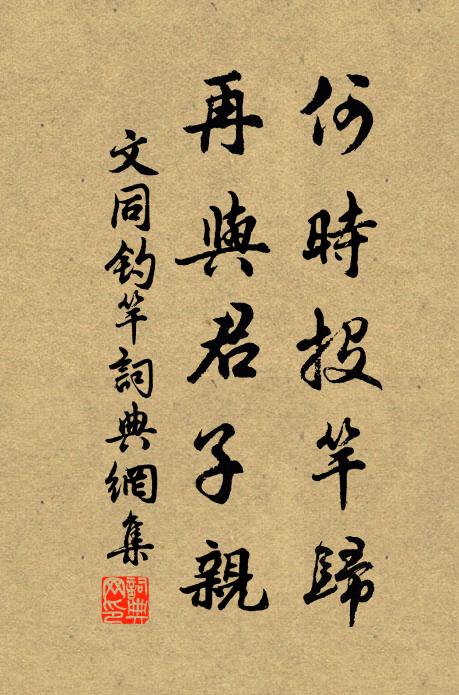 何時投竿歸
再與君子親
文同釣竿詞典網集
詞典
网印